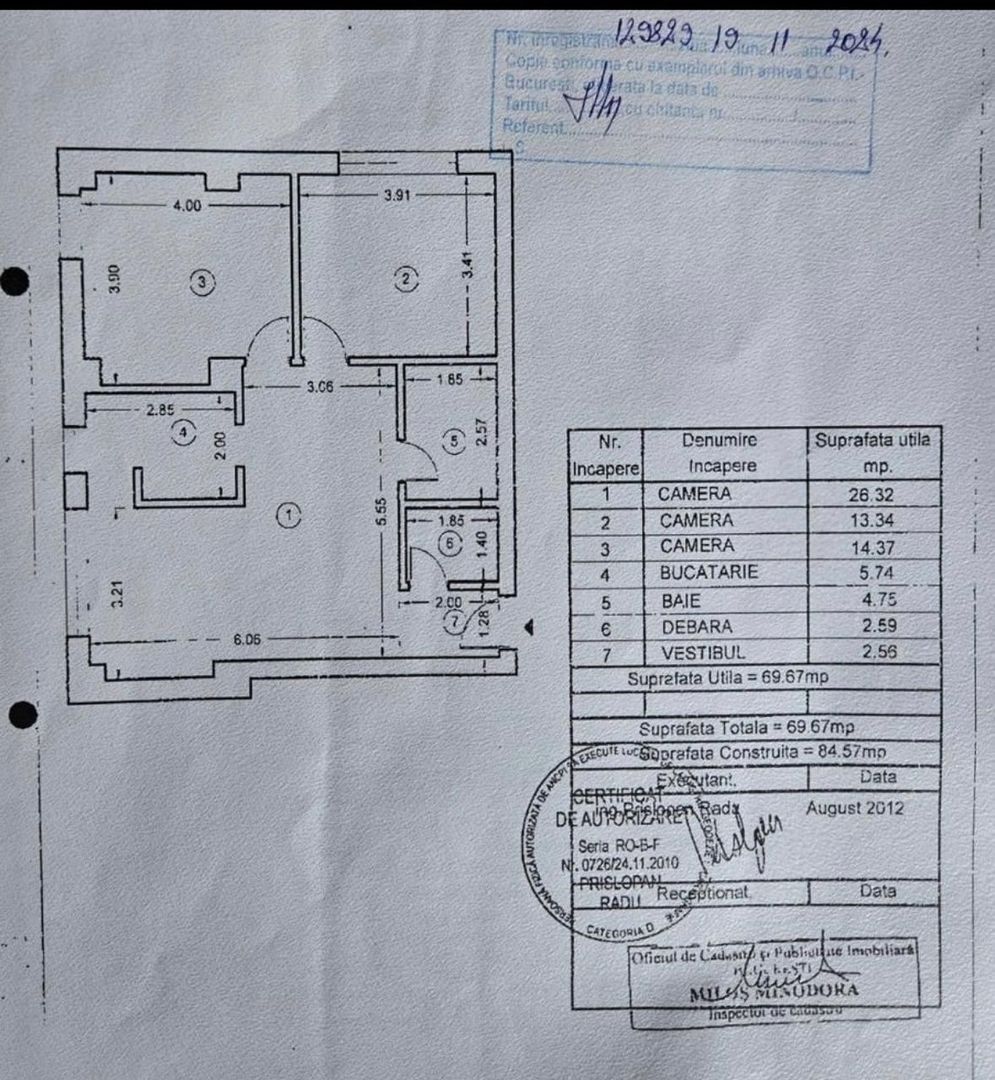 129829 19 11 2024
Nr. inregistrare
Copie conforma cu exemplarul din arhiva O.C.P.I.
Bucuresti, eliberata la data de
Tariful cu chitanta nr. /
Referent
4.00
3.91
3.90
3
2
3.41
3.06
1.85
2.85
4
2.00
5
2.57
5.55
1
1.85
6
1.40
3.21
2.00
7
1.28
6.06
Nr. Incapere Denumire Incapere Suprafata utila mp.
1 CAMERA 26.32
2 CAMERA 13.34
3 CAMERA 14.37
4 BUCATARIE 5.74
5 BAIE 4.75
6 DEBARA 2.59
7 VESTIBUL 2.56
Suprafata Utila = 69.67mp
Suprafata Totala = 69.67mp
Suprafata Construita = 84.57mp
Executant, Data
ing. Prislopan Radu August 2012
PERSOANĂ FIZICĂ AUTORIZATĂ DE ANCPI SĂ EXECUTE
CERTIFICAT
DE AUTORIZARE
Seria RO-B-F
Nr. 0726/24.11.2010
PRISLOPAN
RADU
CATEGORIA D
Receptionat, Data
Oficiul de Cadastru şi Publicitate Imobiliară
MILOŞ MINODORA
Inspector de cadastru